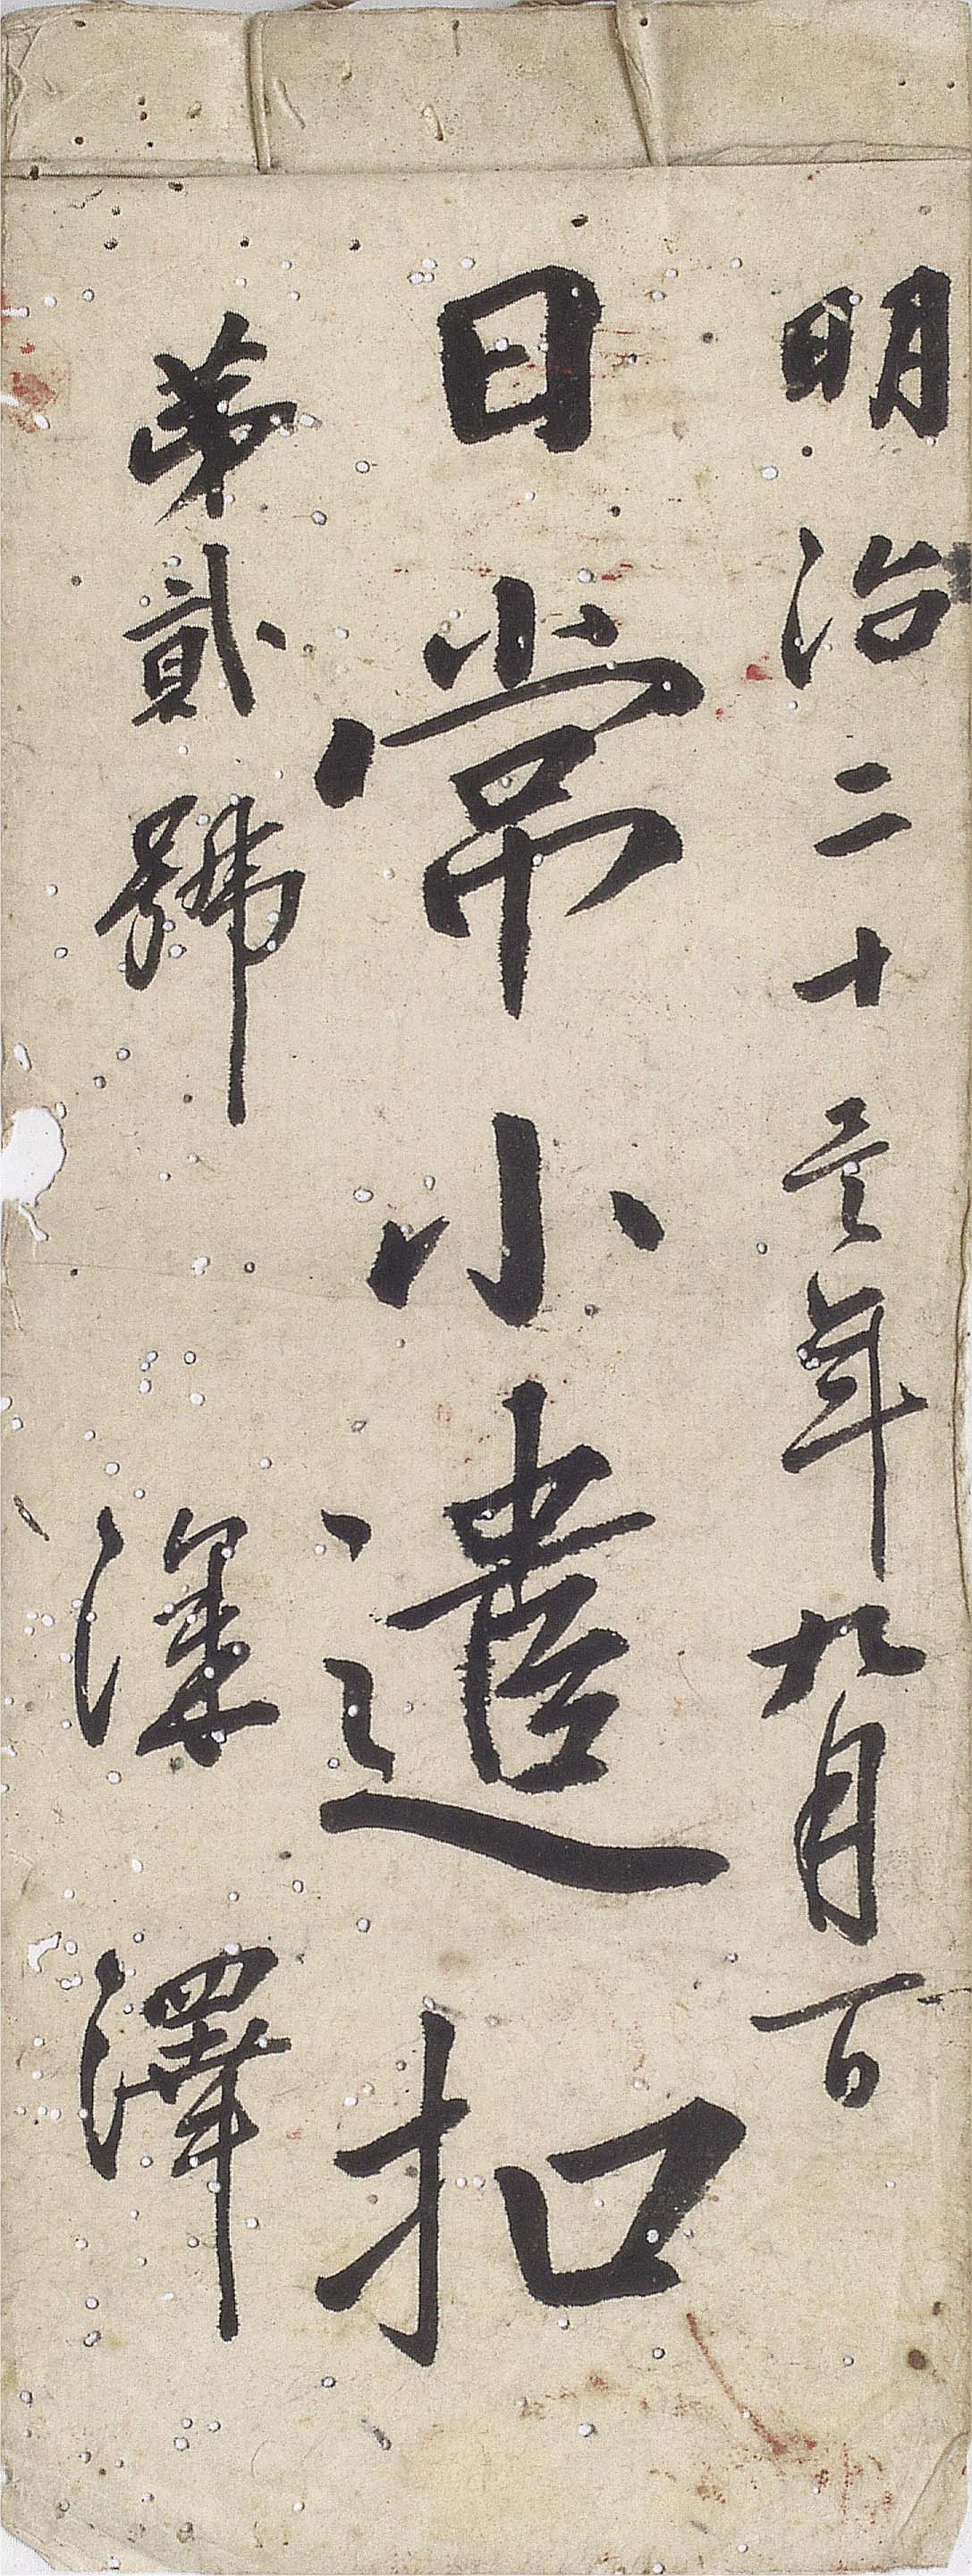 明治二十三年九月一日
日常小遣扣
第貳號　深澤